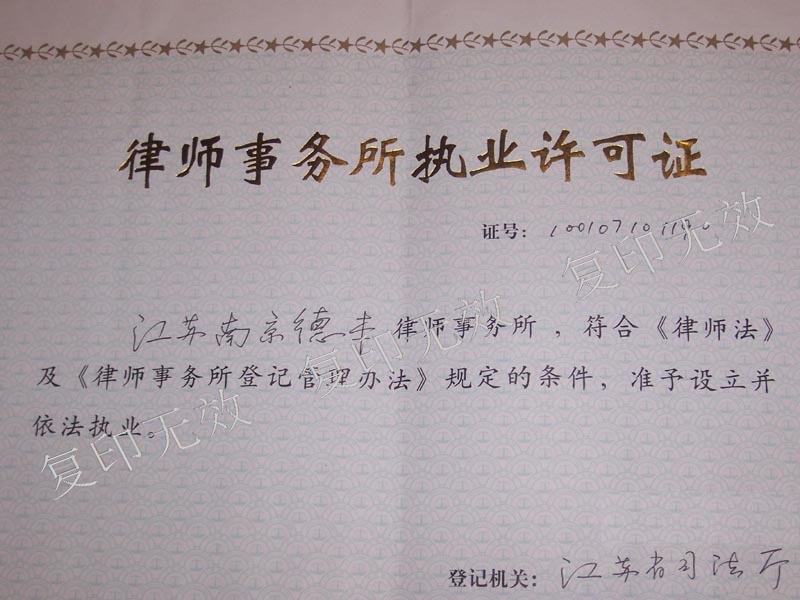 律师事务所执业许可证
证号:
江苏南京德 律师事务所，符合《律师法》
及《律师事务所登记管理办法》规定的条件，准予设立并
依法执业。
登记机关: 江苏省司法厅
复印无效
复印无效
复印无效